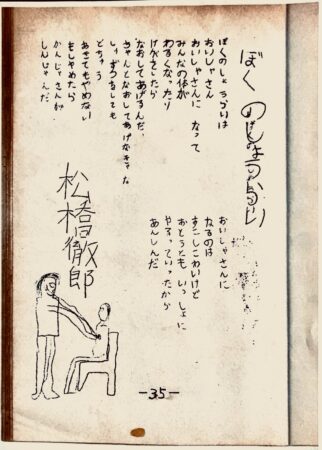 ぼくのしょうらい
ぼくのしょうらいは
おいしゃさん
おいしゃさんに なって
みんなの体が
わるくなったり
けがをしたら
なおしてあげるんだ。
ちゃんとなおしてあげなきゃな
しゅずつをしても
とちゅう
あきてもやめない
もしやめたら
かんじゃさんが
しんじゃんだ。
おいしゃさんに
なるのは
すこしこわいけど
おとうともいっしょに
やるっていったから
あんしんだ
松橋徹郎
-35-